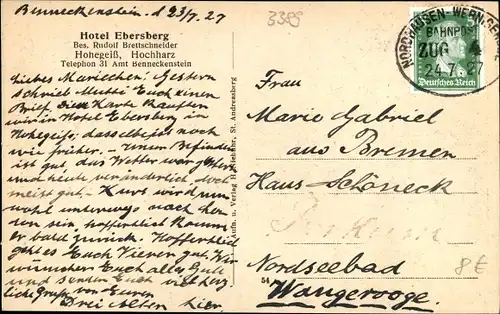 Benneckenstein. d 23/7. 27
3389
Hotel Ebersberg
Bes. Rudolf Brettschneider
Hohegeiß, Hochharz
Telephon 31 Amt Benneckenstein
NORDHAUSEN-WERNIGERODE
BAHNPOST
ZUG 4
24.7.27
Deutsches Reich
Liebes Mariechen! Gestern
schrieb Mutti Euch einen
Brief. Diese Karte kauften
wir in Hotel Ebersberg in
Hohegeiß, dasselbe ist noch
wie früher. – Unser Befinden
ist gut, das Wetter war gestern
und heute veränderlich, doch
meist gut. – Kurt wird nun
wohl unterwegs nach
sein, hoffentlich kommt
er bald zurück. Hoffentlich
geht es Euch Vieren gut. Wir
wünschen Euch alles Gute
und senden Euch viel herz-
liche Grüße von Euren
Drei Alten hier.
Aufn. u. Verlag H. St. Andreasberg
Frau
Marie Gabriel
aus Bremen
Haus Schöneck
Nordseebad
Wangerooge.
54
8€